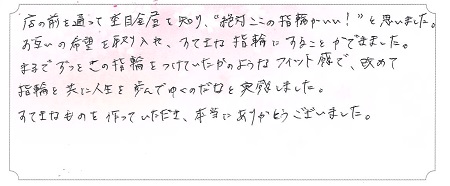 店の前を通って杢目金屋を知り、"絶対ここの指輪がいい!"と思いました。
お互いの希望を取り入れ、すてきな指輪にすることができました。
まるでずっとこの指輪をつけていたかのようなフィット感で、改めて
指輪と共に人生を歩んでゆくのだなと実感しました。
すてきなものを作っていただき、本当にありがとうございました。